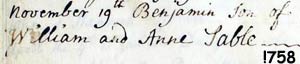 November 19th Benjamin Son of
William and Anne Sable
1758